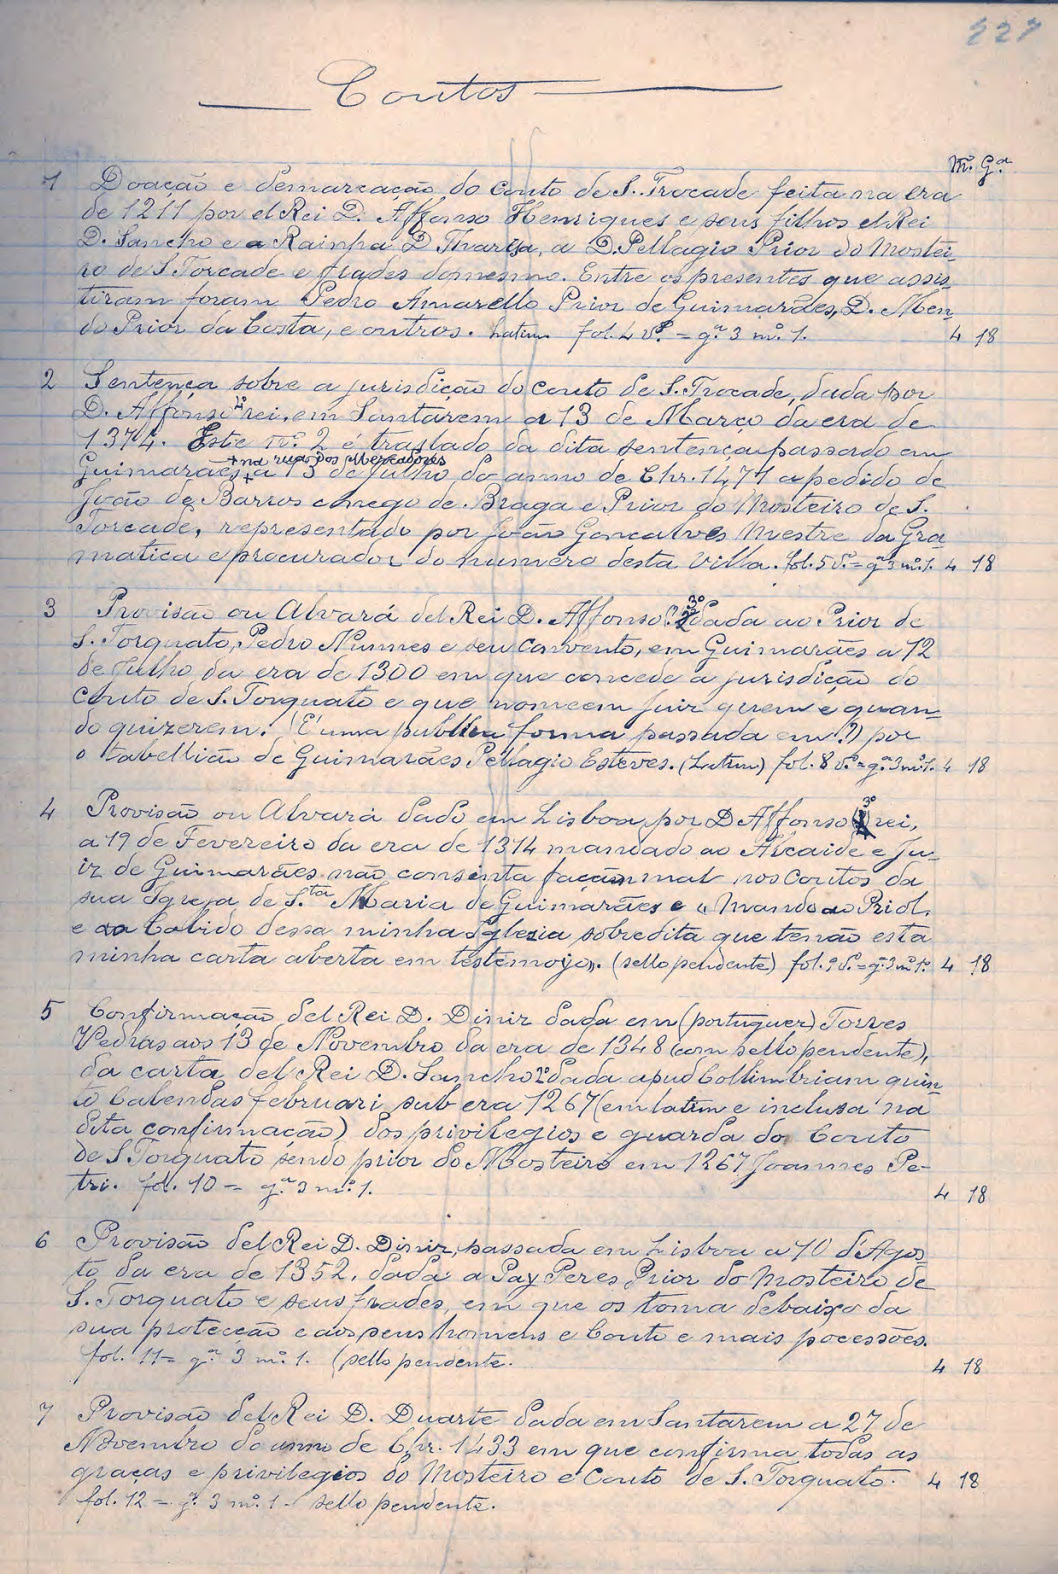 227
Coutos
M.º G.ª
1 Doação e demarcação do couto de S. Trocade feita na era
de 1211 por el Rei D. Affonso Henriques e seus filhos el Rei
D. Sancho e a Rainha D. Tharesa, a D. Pellagio Prior do Mostei-
ro de S. Torcade e frades do mesmo. Entre os presentes que assis-
tiram foram Pedro Amarello Prior de Guimarães, D. Men-
do Prior da Costa, e outros. Latim fol. 4 vº. = gª 3 mº 1. 4 18
2 Sentença sobre a jurisdição do couto de S. Trocade, dada por
D. Affonso 4º rei, em Santarem a 13 de Março da era de
1374. Este nº 2 é traslado da dita sentença passado em
+ na rua dos Mercadores
Guimarães + a 13 de Julho do anno de Chr. 1471 a pedido de
João de Barros conego de Braga e Prior do Mosteiro de S.
Torcade, representado por João Gonçalves Mestre da Gra-
matica e procurador do numero desta Villa. fol. 5 vº. = gª 3 mº 1. 4 18
3 Provisão ou Alvará del Rei D. Affonso 3º dada ao Prior de
S. Torquato, Pedro Nunnes e seu convento, em Guimarães a 12
de Julho da era de 1300 em que concede a jurisdição do
couto de S. Torquato e que nomeem juiz quem e quan-
do quizerem. (É uma publica forma passada em ?) por
o tabellião de Guimarães Pellagio Esteves. (Latim) fol. 8 vº. = gª 3 mº 1. 4 18
4 Provisão ou Alvará dado em Lisboa por D Affonso 3º rei,
a 19 de Fevereiro da era de 1314 mandado ao Alcaide e Ju-
iz de Guimarães não consinta façam mal nos coutos da
sua Igreja de S.ta Maria de Guimarães e "Mando ao Priol,
e ao Cabido dessa minha Iglesia sobredita que tenão esta
minha carta aberta em testemoyo". (sello pendente) fol. 9 vº. = gª 3 mº 1º 4 18
5 Confirmação del Rei D. Diniz dada em (portuguez) Torres
Vedras aos 13 de Novembro da era de 1348 (com sello pendente),
da carta del Rei D. Sancho 2º dada apud Collimbriam quin-
to Calendas februari sub era 1267 (em latim e inclusa na
dita confirmação) dos privilegios e guarda do Couto
de S. Torquato sendo prior do Mosteiro em 1267 Joannes Pe-
tri. fol. 10 = gª 3 mº 1. 4 18
6 Provisão del Rei D. Diniz, passada em Lisboa a 10 d'Agos-
to da era de 1352, dada a Pay Peres Prior do Mosteiro de
S. Torquato e seus frades, em que os toma debaixo da
sua protecção e aos seus homens e Couto e mais pocessões.
fol. 11 = gª 3 mº 1. (sello pendente. 4 18
7 Provisão del Rei D. Duarte dada em Santarem a 27 de
Novembro do anno de Chr. 1433 em que confirma todas as
graças e privilegios do Mosteiro e Couto de S. Torquato. 4 18
fol. 12 = gª 3 mº 1 - sello pendente.